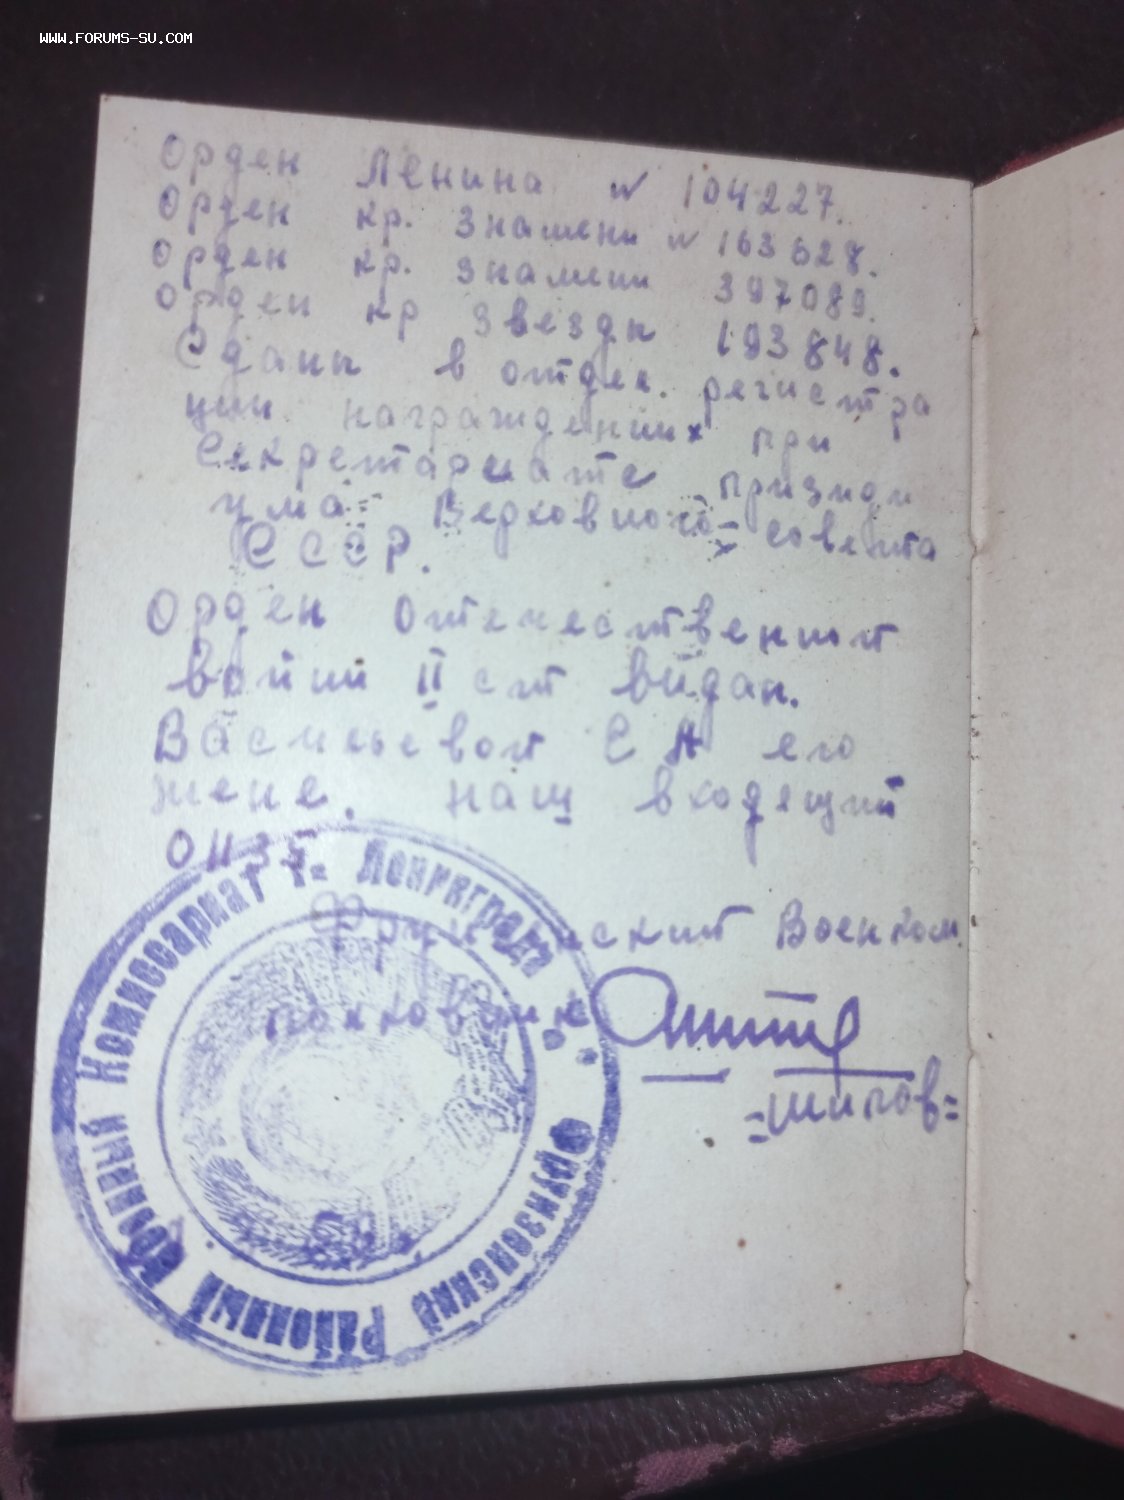 WWW.FORUMS-SU.COM
Орден Ленина № 104227.
Орден кр. Знамени № 163628.
Орден кр. Знамени 397089.
Орден кр Звезды 193848.
Сданы в отдел. регистра
ции награждениих при
Секретариате призиди
ума Верховного совета
СССР.
Орден Отечественной
войны II ст выдан.
Васильевой Е А его
жене. наш входящий
01135
Фрунзенский Военком.
полковник
=Шилов=
Фрунзенский Районный Военный Комиссариат г. Ленинграда